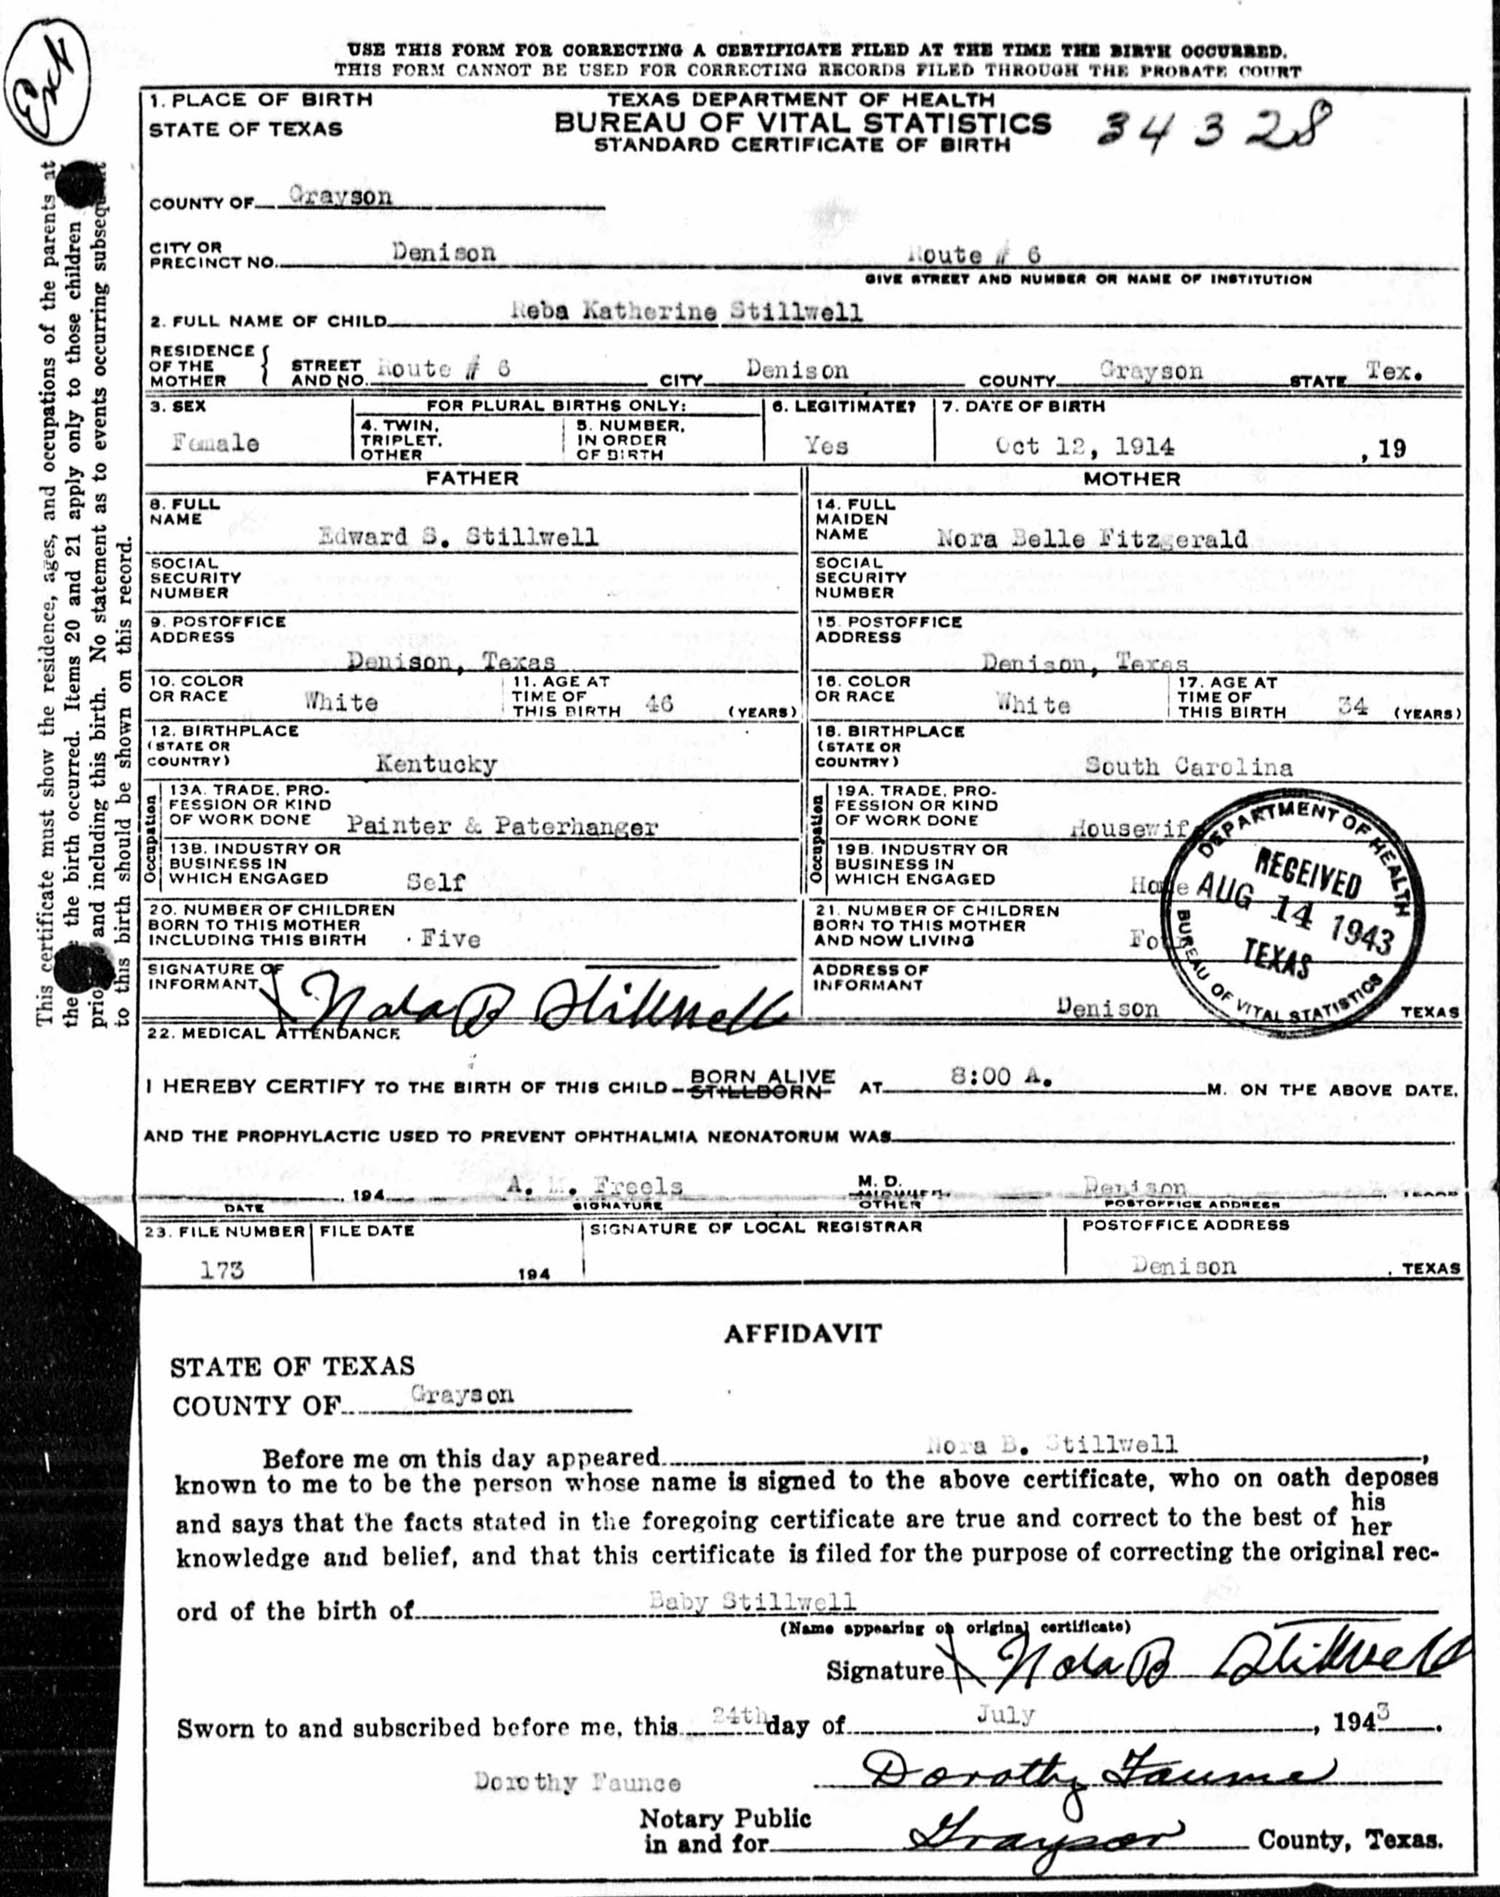 Ext
USE THIS FORM FOR CORRECTING A CERTIFICATE FILED AT THE TIME THE BIRTH OCCURRED.
THIS FORM CANNOT BE USED FOR CORRECTING RECORDS FILED THROUGH THE PROBATE COURT
1. PLACE OF BIRTH
STATE OF TEXAS
TEXAS DEPARTMENT OF HEALTH
BUREAU OF VITAL STATISTICS
STANDARD CERTIFICATE OF BIRTH
34328
COUNTY OF Grayson
CITY OR PRECINCT NO. Denison Route # 6
GIVE STREET AND NUMBER OR NAME OF INSTITUTION
2. FULL NAME OF CHILD Reba Katherine Stillwell
RESIDENCE OF THE MOTHER { STREET AND NO. Route # 6 CITY Denison COUNTY Grayson STATE Tex.
3. SEX
Female
FOR PLURAL BIRTHS ONLY:
4. TWIN, TRIPLET, OTHER
5. NUMBER, IN ORDER OF BIRTH
6. LEGITIMATE?
Yes
7. DATE OF BIRTH
Oct 12, 1914 , 19
FATHER
MOTHER
8. FULL NAME Edward S. Stillwell
14. FULL MAIDEN NAME Nora Belle Fitzgerald
SOCIAL SECURITY NUMBER
SOCIAL SECURITY NUMBER
9. POSTOFFICE ADDRESS Denison, Texas
15. POSTOFFICE ADDRESS Denison, Texas
10. COLOR OR RACE White
11. AGE AT TIME OF THIS BIRTH 46 (YEARS)
16. COLOR OR RACE White
17. AGE AT TIME OF THIS BIRTH 34 (YEARS)
12. BIRTHPLACE (STATE OR COUNTRY) Kentucky
18. BIRTHPLACE (STATE OR COUNTRY) South Carolina
Occupation
13A. TRADE, PROFESSION OR KIND OF WORK DONE Painter & Paterhanger
13B. INDUSTRY OR BUSINESS IN WHICH ENGAGED Self
Occupation
19A. TRADE, PROFESSION OR KIND OF WORK DONE Housewif
19B. INDUSTRY OR BUSINESS IN WHICH ENGAGED Home
20. NUMBER OF CHILDREN BORN TO THIS MOTHER INCLUDING THIS BIRTH Five
21. NUMBER OF CHILDREN BORN TO THIS MOTHER AND NOW LIVING Fo
DEPARTMENT OF HEALTH
RECEIVED
AUG 14 1943
TEXAS
BUREAU OF VITAL STATISTICS
SIGNATURE OF INFORMANT X Nola B Stillwell
ADDRESS OF INFORMANT Denison TEXAS
22. MEDICAL ATTENDANCE
I HEREBY CERTIFY TO THE BIRTH OF THIS CHILD BORN ALIVE STILLBORN AT 8:00 A. M. ON THE ABOVE DATE,
AND THE PROPHYLACTIC USED TO PREVENT OPHTHALMIA NEONATORUM WAS
, 194 A. M. Freels M. D. MIDWIFE OTHER Denison , TEXAS
DATE SIGNATURE POSTOFFICE ADDRESS
23. FILE NUMBER
173
FILE DATE
194
SIGNATURE OF LOCAL REGISTRAR
POSTOFFICE ADDRESS
Denison , TEXAS
AFFIDAVIT
STATE OF TEXAS
COUNTY OF Grayson
Before me on this day appeared Nora B. Stillwell ,
known to me to be the person whose name is signed to the above certificate, who on oath deposes
and says that the facts stated in the foregoing certificate are true and correct to the best of his her
knowledge and belief, and that this certificate is filed for the purpose of correcting the original rec-
ord of the birth of Baby Stillwell
(Name appearing on original certificate)
Signature X Nola B Stillwell
Sworn to and subscribed before me, this 24th day of July , 1943 .
Dorothy Faunce Dorothy Faunce
Notary Public
in and for Grayson County, Texas.
This certificate must show the residence, ages, and occupations of the parents at
the the birth occurred. Items 20 and 21 apply only to those children
and including this birth. No statement as to events occurring subsequent
to this birth should be shown on this record.